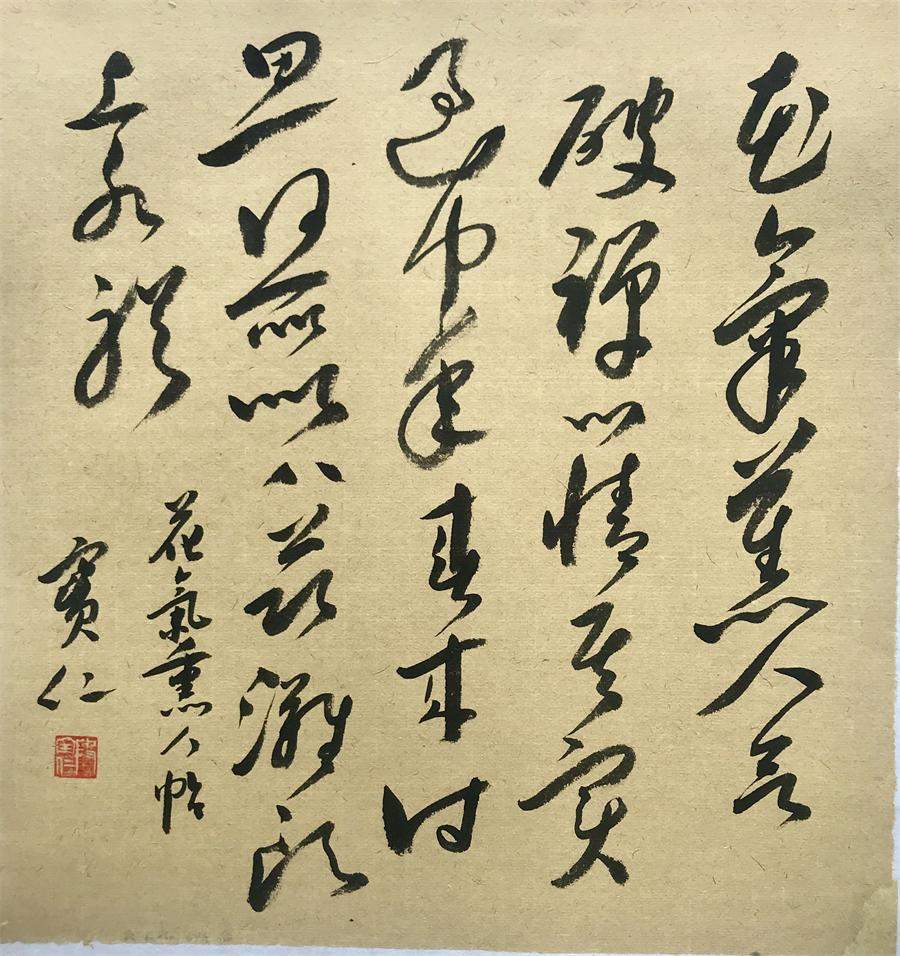 花氣薰人欲
破禪心情其實
過中年春來詩
思何所似八節灘頭
上水船
花氣熏人帖
寶仁